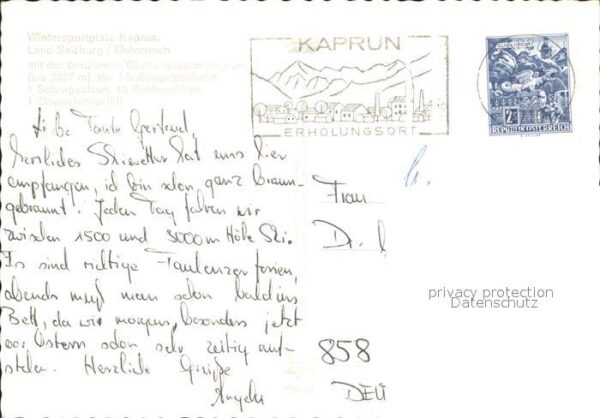 Wintersportplatz Kaprun,
Land Salzburg / Österreich
mit der berühmten Gletscherbahn Kaprun
1 Schrägaufzug, 10 Schlepplifte,
1 Doppelsessellift
KAPRUN
ERHOLUNGSORT
2
REPUBLIK ÖSTERREICH
Liebe Tante Gertrud,
herrliches Skiwetter hat uns hier
empfangen, ich bin schon ganz braun-
gebrannt. Jeden Tag fahren wir
zwischen 1500 und 3000 m Höhe Ski.
Es sind richtige Faulenzerferien,
abends muß man schon bald ins
Bett, da wir morgens, besonders jetzt
vor Ostern schon sehr zeitig auf-
stehen. Herzliche Grüße
Angela
Frau
Dr.
858
DEU
privacy protection
Datenschutz